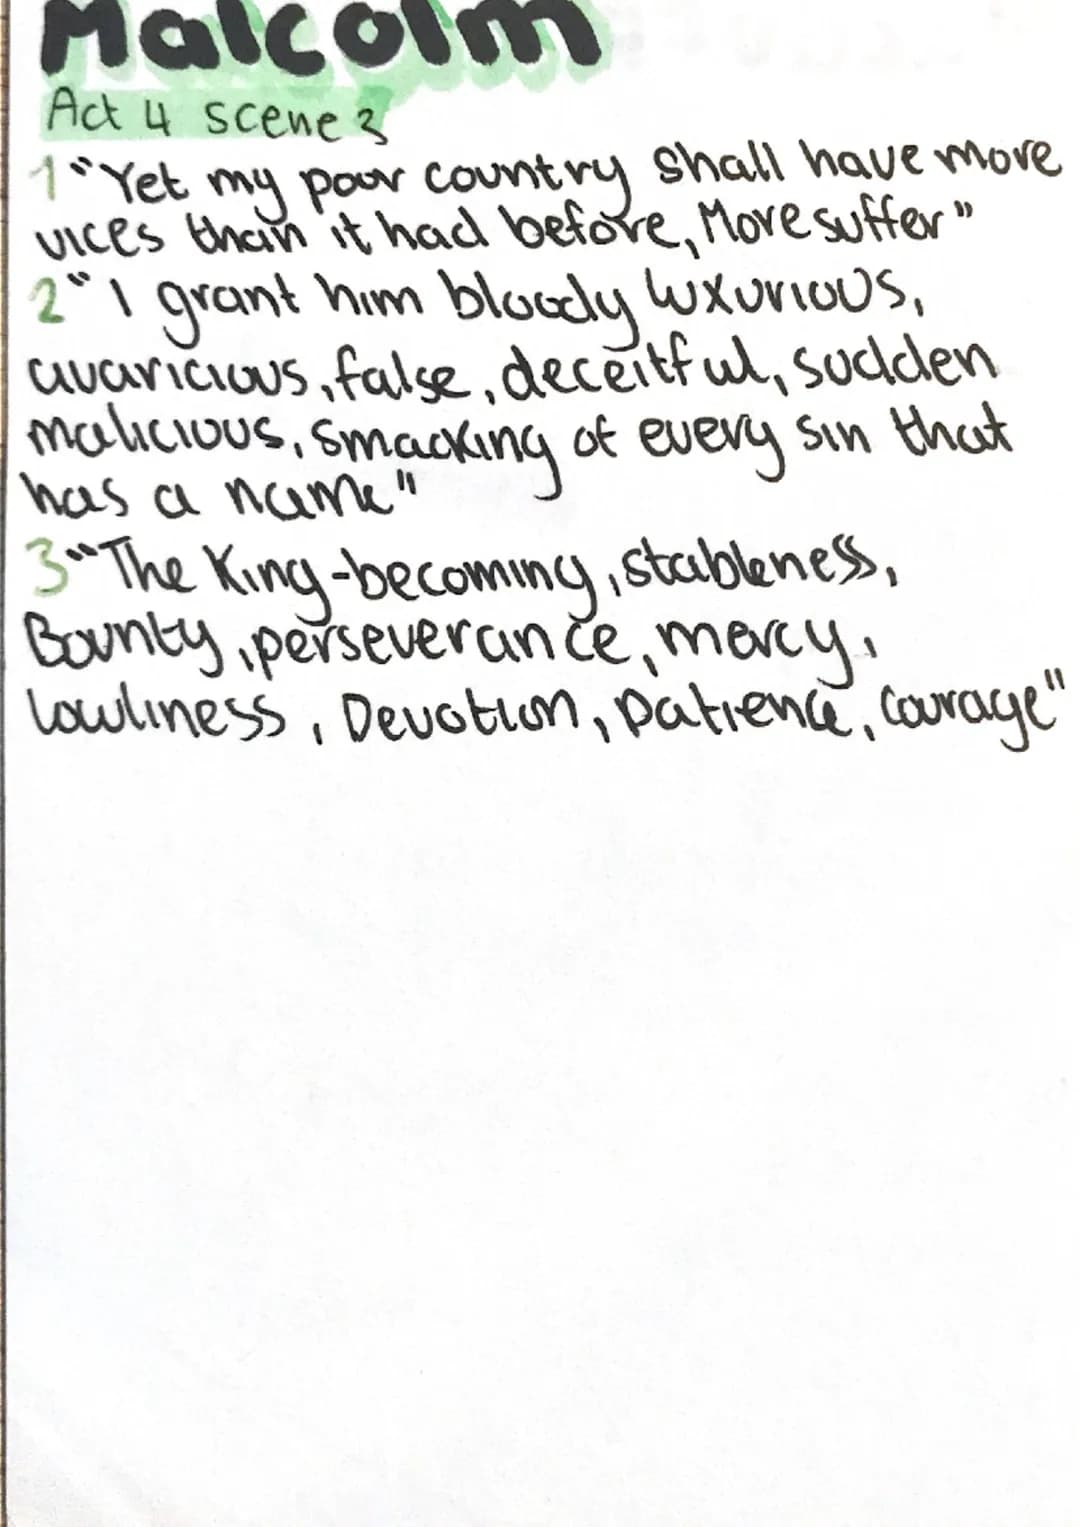 Malcolm
Act 4 scene 3
1 "Yet my poor country shall have more
vices than it had before, More suffer"
2 "I grant him bloody luxurious,
avaricious, false, deceitful, sudden
malicious, smacking of every sin that
has a name"
3 "The King-becoming, stableness,
Bounty, perseverance, mercy,
lowliness, Devotion, patience, courage"